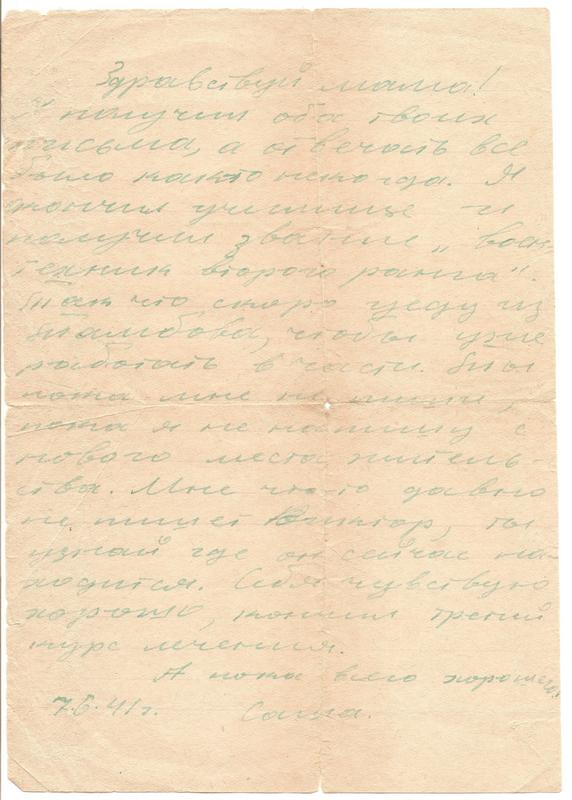 Здравствуй мама!
Я получил оба твоих
письма, а отвечать все
было както некогда. Я
окончил училище и
получил звание „воен-
техник второго ранга“.
Так что скоро уеду из
Тамбова, чтобы уже
работать в части. Ты
пока мне не пиши,
пока я не напишу с
нового места житель-
ства. Мне что-то давно
не пишет Виктор, ты
узнай где он сейчас на-
ходится. Себя чувствую
хорошо, кончил третий
курс лечения.
А пока всего хорошего.
7. 41 г. Саша.